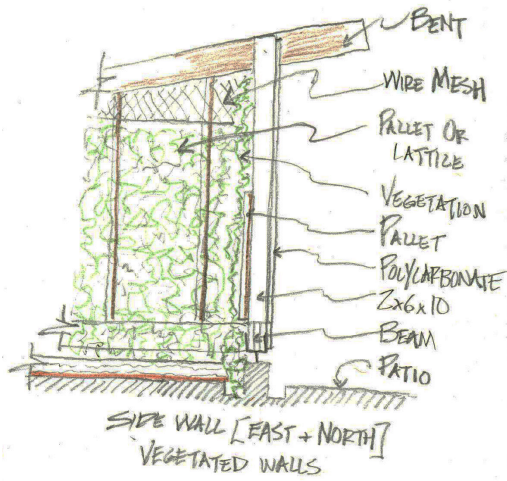 BENT
WIRE MESH
PALLET OR
LATTICE
VEGETATION
PALLET
POLYCARBONATE
2x6x10
BEAM
PATIO
SIDE WALL [EAST + NORTH]
VEGETATED WALLS